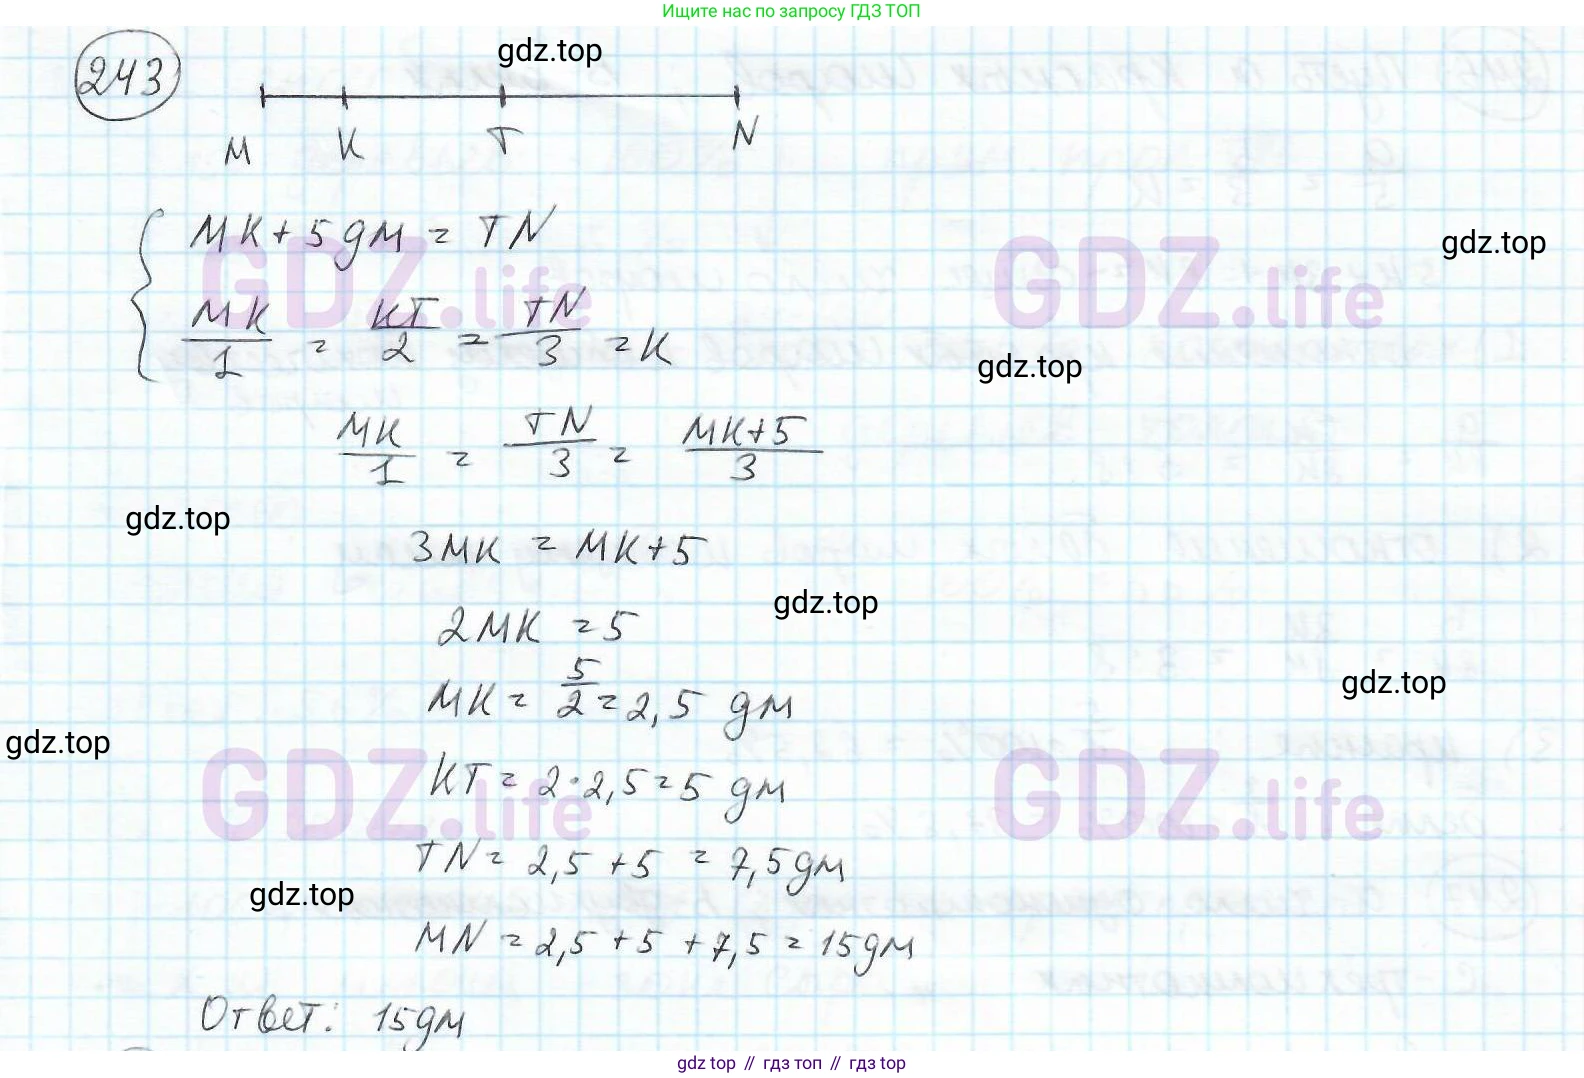 Ищите нас по запросу ГДЗ ТОП
gdz.top
243
M K T N
MK + 5 дм = TN
gdz.top
GDZ.life GDZ.life
MK/1 = KT/2 = TN/3 = K
gdz.top
MK/1 = TN/3 = MK+5/3
gdz.top
3MK = MK+5
gdz.top
2MK = 5
gdz.top
MK = 5/2 = 2,5 дм
gdz.top
KT = 2·2,5 = 5 дм
GDZ.life GDZ.life
TN = 2,5 + 5 = 7,5 дм
gdz.top
MN = 2,5 + 5 + 7,5 = 15 дм
Ответ: 15 дм
gdz top // гдз топ // gdz top